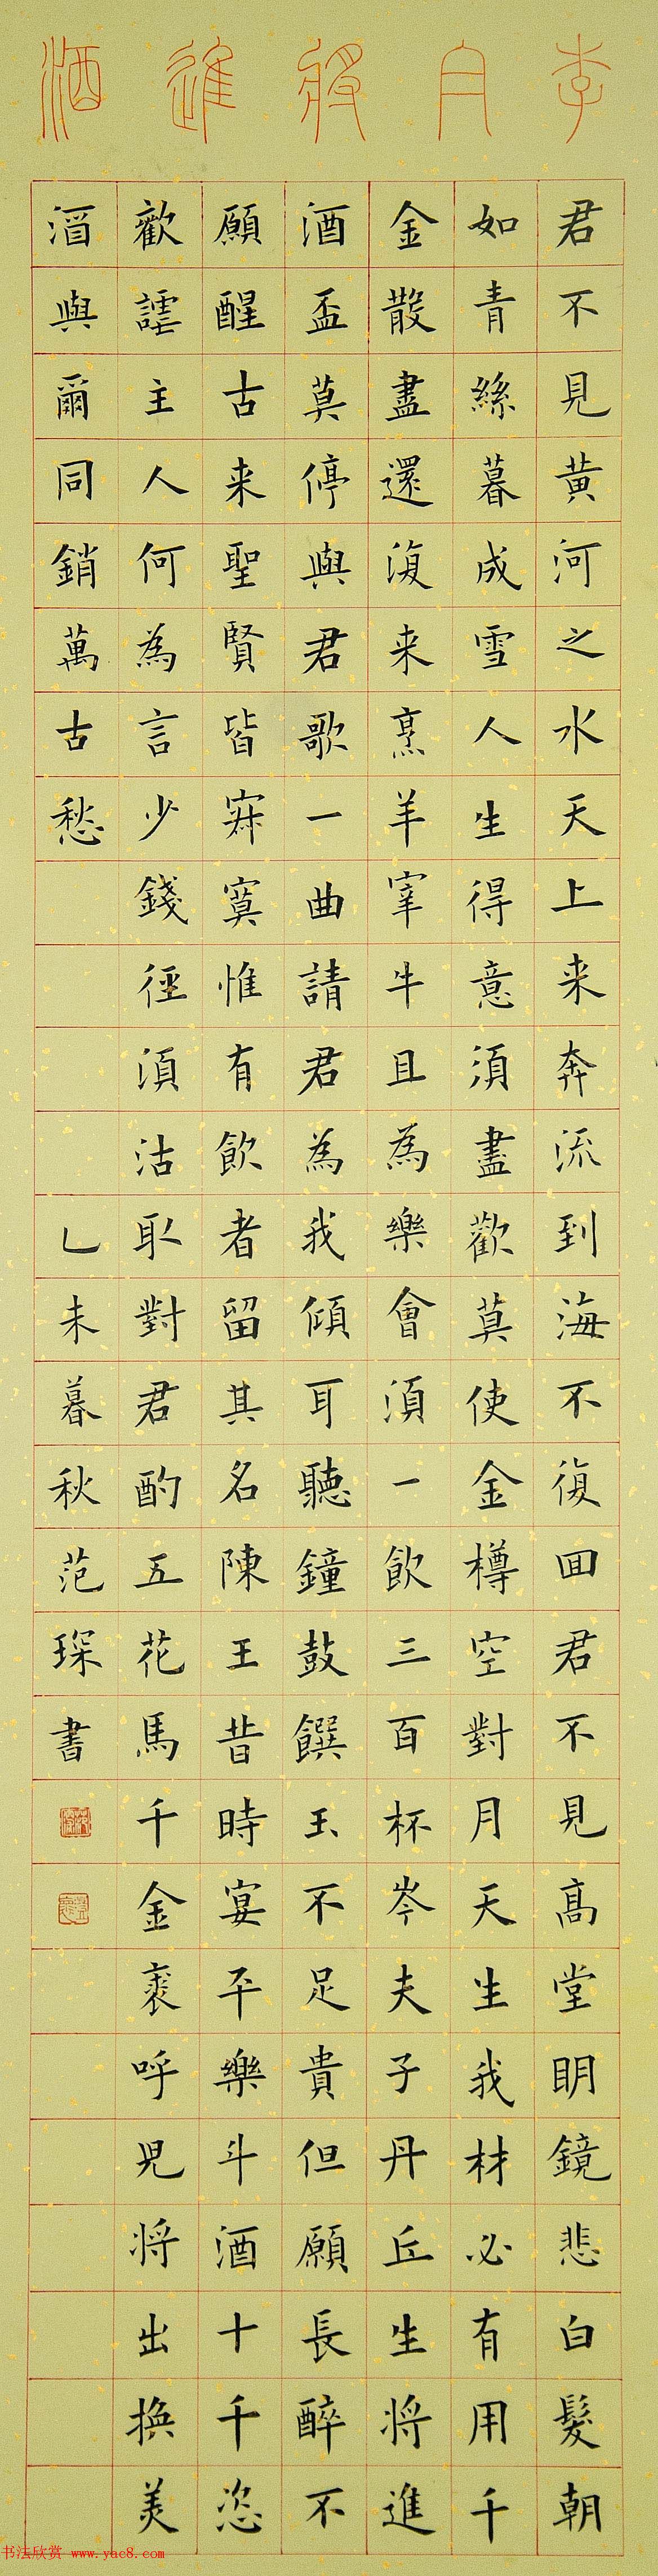 李白將進酒
君不見黄河之水天上来奔流到海不復囬君不見髙堂眀鏡悲白髮朝
如青絲暮成雪人生得意須盡歡莫使金樽空對月天生我材必有用千
金散盡還復来烹羊宰牛且為樂會須一飲三百杯岑夫子丹丘生将進
酒盃莫停與君歌一曲請君為我傾耳聽鐘鼓饌玉不足貴但願長醉不
願醒古来聖賢皆寂寞惟有飲者留其名陳王昔時宴平樂斗酒十千恣
歡謔主人何為言少錢徑須沽取對君酌五花馬千金裘呼兒将出換美
酒與爾同銷萬古愁
乙未暮秋范琛書
书法欣赏 www.yac8.com